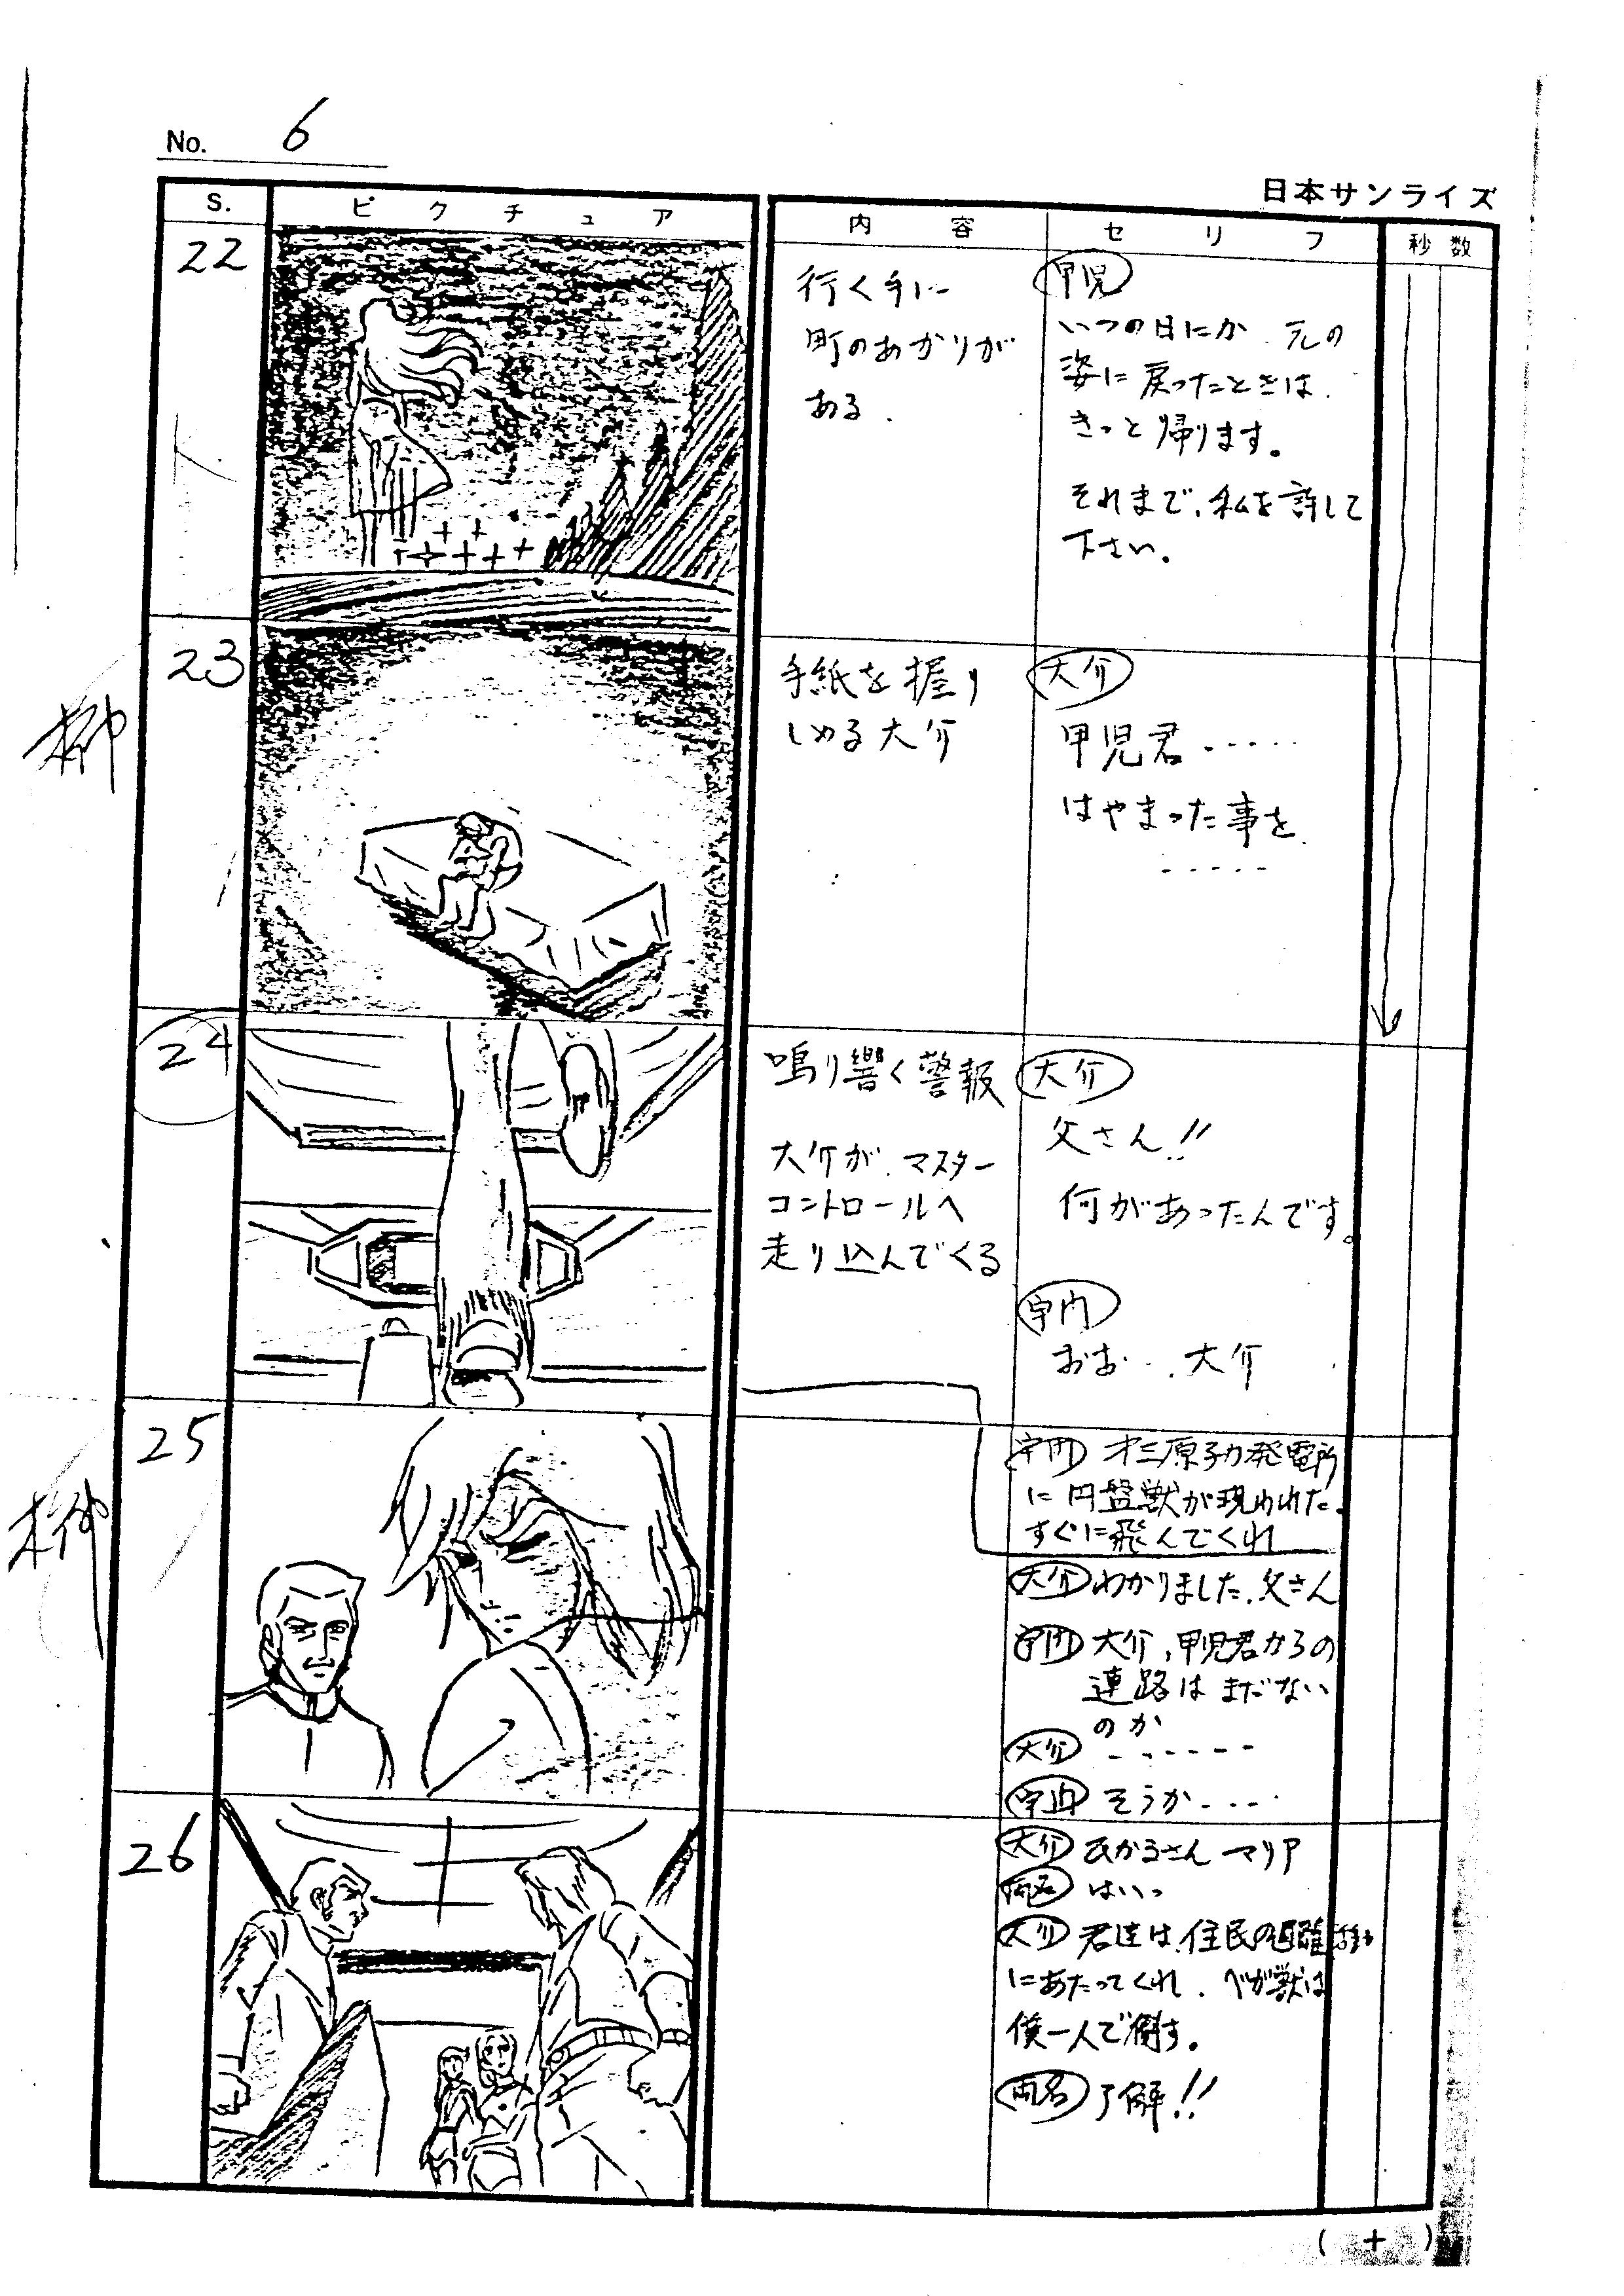 No. 6
日本サンライズ
S.
ピクチュア
内容
セリフ
秒数
22
行く手に
町のあかりが
ある.
甲児
いつの日にか 元の
姿に戻ったときは
きっと帰ります。
それまで、私を許して
下さい.
23
手紙を握り
しめる大介
大介
甲児君・・・・・
はやまった事を
・・・・・
24
鳴り響く警報
大介が、マスター
コントロールへ
走り込んでくる
大介
父さん!!
何があったんです。
宇門
おお・・、大介
25
宇門 才三原子力発電所
に円盤獣が現われた.
すぐに飛んでくれ
大介 わかりました、父さん
宇門 大介、甲児君からの
連路は まだない
のか
大介 ------
宇門 そうか----
26
大介 ひかるさん マリア
両名 はいっ
大介 君達は、住民の避難
にあたってくれ. ベガ獣は
僕一人で倒す。
両名 了解!!
( + )